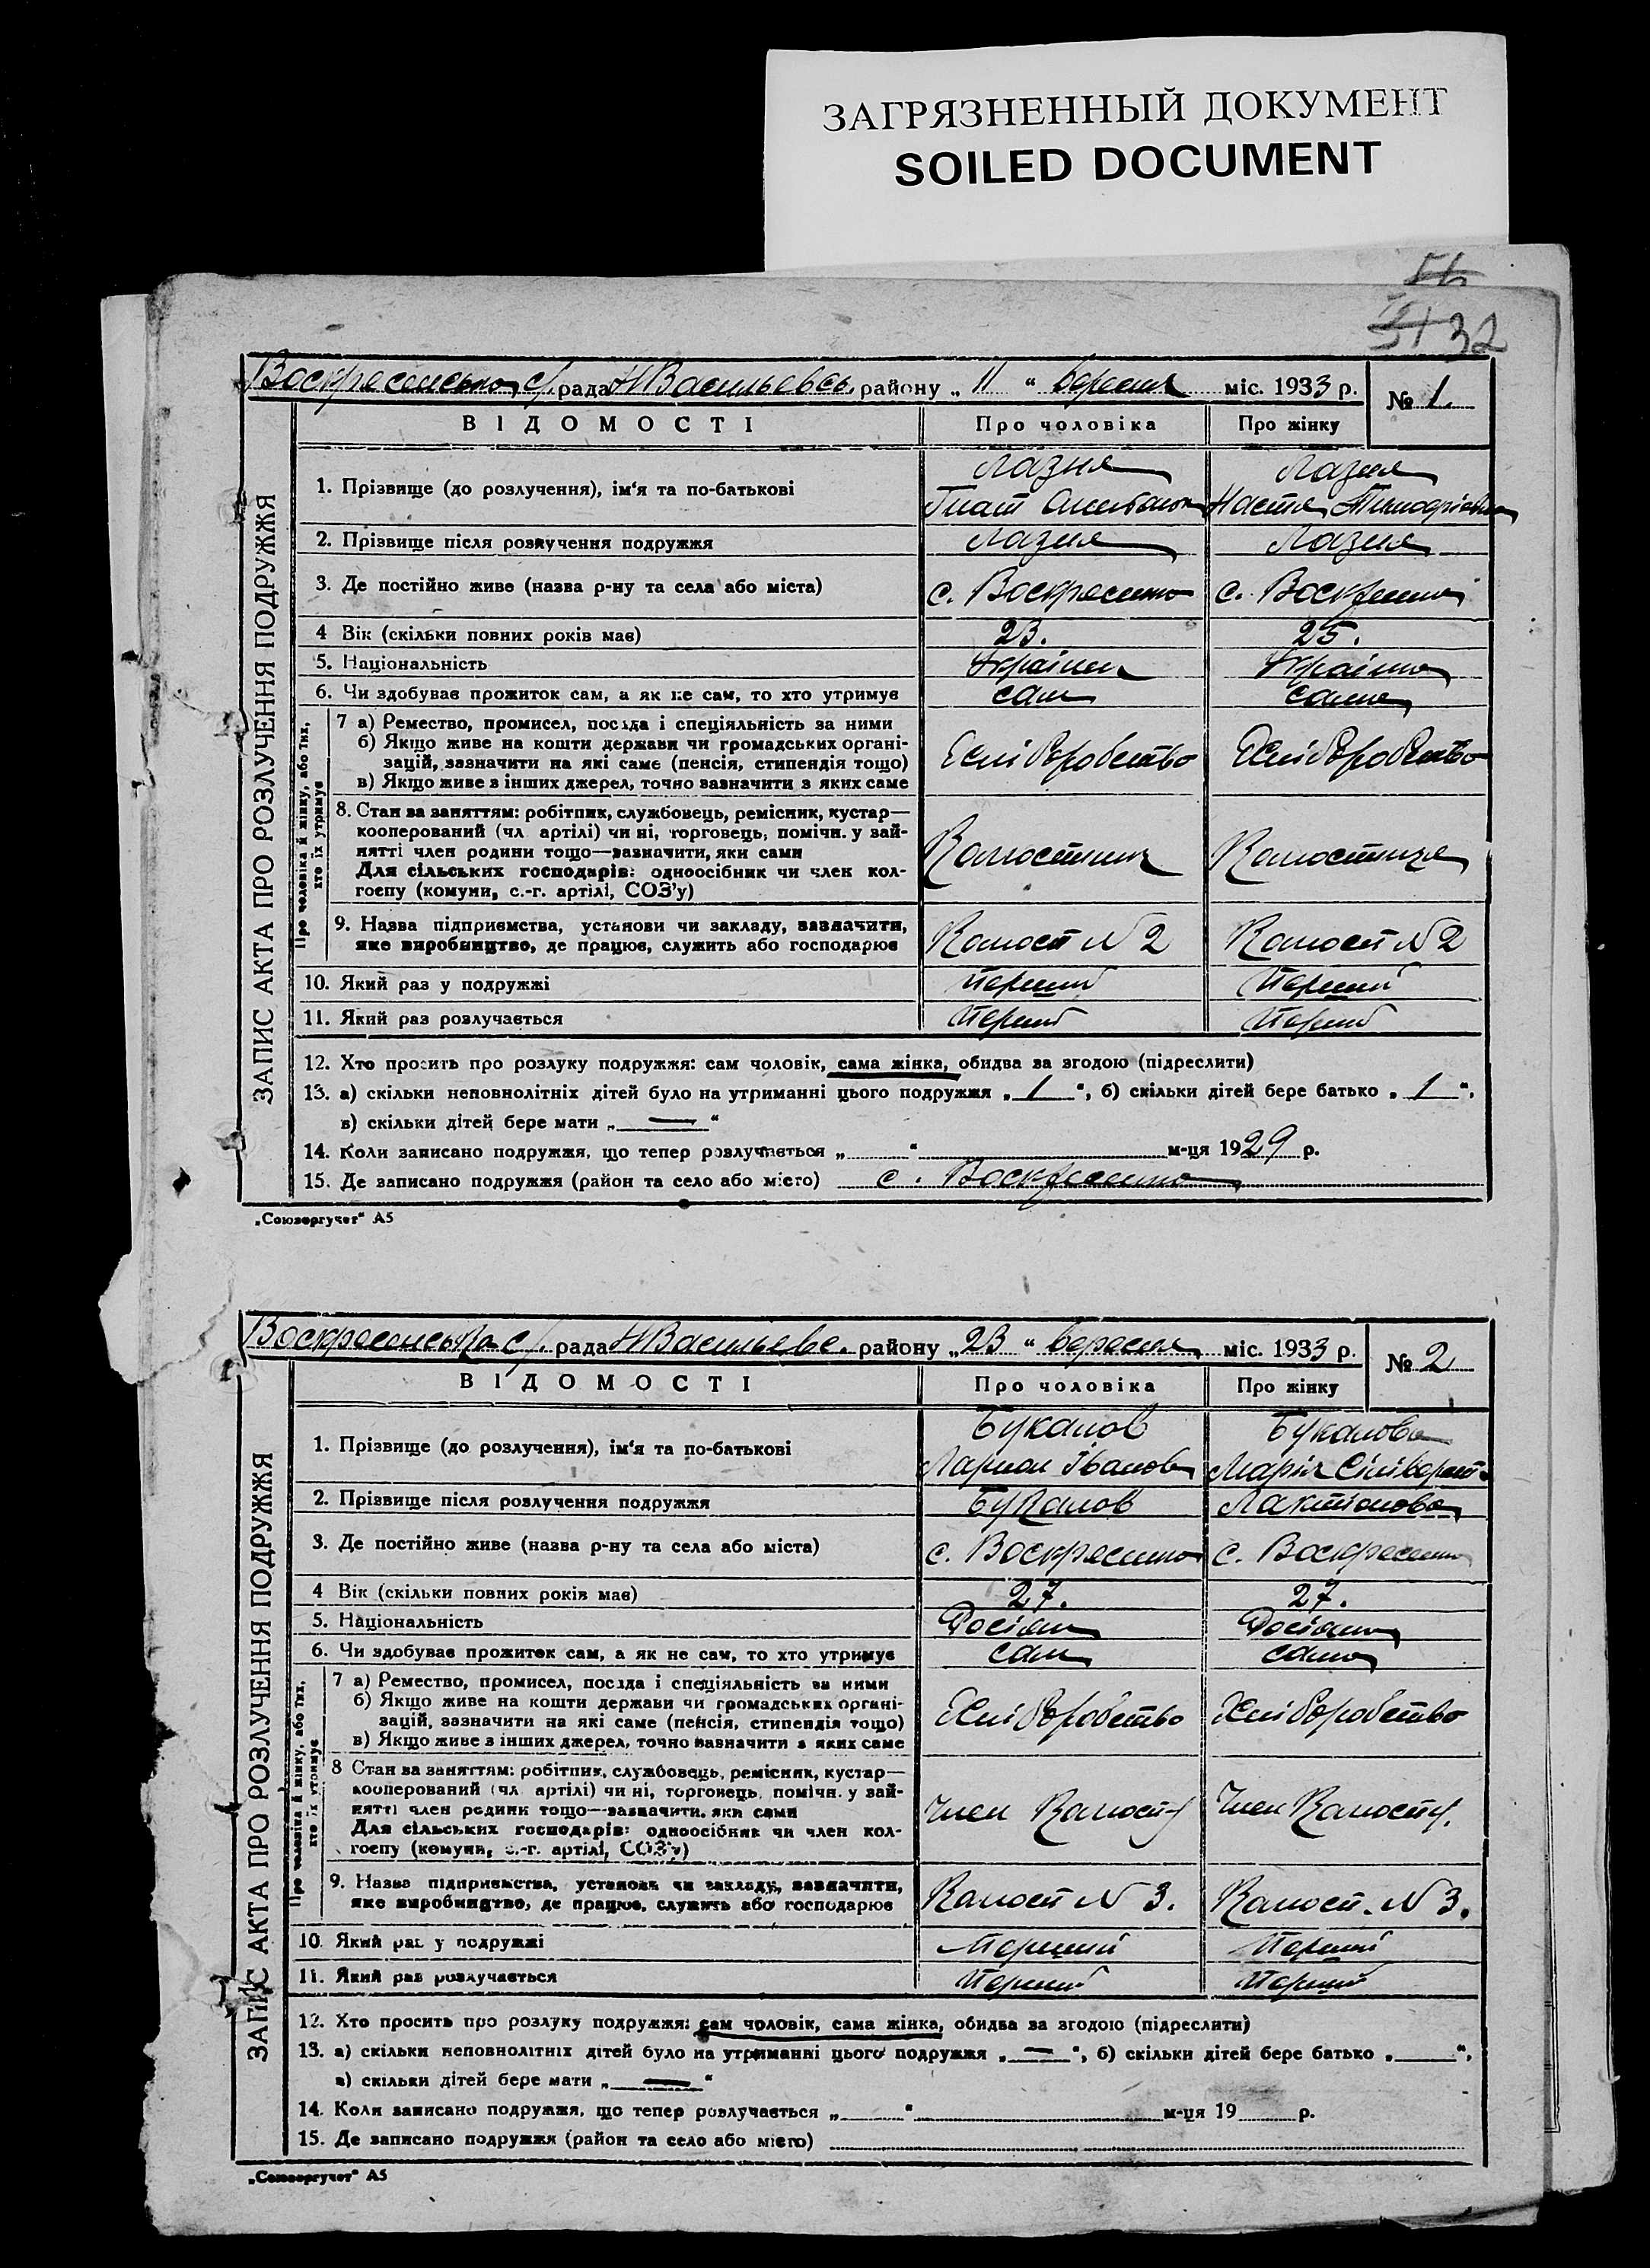 ЗАГРЯЗНЕННЫЙ ДОКУМЕНТ
SOILED DOCUMENT
32
рада Н Васильевсь. району „ 11 “ березня міс. 1933 р. № 1.
ЗАПИС АКТА ПРО РОЗЛУЧЕННЯ ПОДРУЖЖЯ
ВІДОМОСТІ Про чоловіка Про жінку
Лазня Лазня
1. Прізвище (до розлучення), ім'я та по-батькові
Гнат Настя Тимофіевна
2. Прізвище після розлучення подружжя Лазня Лазня
3. Де постійно живе (назва р-ну та села або міста) с. Воскресенка с. Воскресенка
4 Вік (скільки повних років має) 23. 25.
5. Національність Українец Українка
6. Чи здобуває прожиток сам, а як не сам, то хто утримує сам сама
Про чоловіка й жінку, або тих, хто їх утримує
7 а) Ремество, промисел, посада і спеціяльність за ними
б) Якщо живе на кошти держави чи громадських органі-
зацій, зазначити на які саме (пенсія, стипендія тощо) Хліборобство Хліборобство
в) Якщо живе з інших джерел, точно зазначити з яких саме
8. Стан за заняттям: робітник, службовець, ремісник, кустар—
кооперований (чл. артілі) чи ні, торговець, помічн. у зай-
нятті член родини тощо—зазначити, яки сами
Для сільських господарів: одноосібник чи член кол-
госпу (комуни, с.-г. артілі, СОЗ'у)
9. Назва підприємства, установи чи закладу, зазначити,
яке виробництво, де працює, служить або господарює Колгосп N 2 Колгосп N 2
10. Який раз у подружжі Перший Перший
11. Який раз розлучається Перший Перший
12. Хто просить про розлуку подружжя: сам чоловік, сама жінка, обидва за згодою (підреслити)
13. а) скільки неповнолітніх дітей було на утриманні цього подружжя „ 1 “, б) скільки дітей бере батько „ 1 “,
в) скільки дітей бере мати „ — “
14. Коли записано подружжя, що тепер розлучається „ “ м-ця 1929 р.
15. Де записано подружжя (район та село або місто) с. Воскресенка
„Союзоргучет“ А5
Воскресенська с/. рада Н Васильевс. району „ 23 “ березня міс. 1933 р. № 2
ЗАПИС АКТА ПРО РОЗЛУЧЕННЯ ПОДРУЖЖЯ
ВІДОМОСТІ Про чоловіка Про жінку
Букалов Букалова
1. Прізвище (до розлучення), ім'я та по-батькові
Ларион Іванов Марія
2. Прізвище після розлучення подружжя Букалов Лактіонова
3. Де постійно живе (назва р-ну та села або міста) с. Воскресенка с. Воскресенка
4 Вік (скільки повних років має) 27. 27.
5. Національність
6. Чи здобуває прожиток сам, а як не сам, то хто утримує сам сама
Про чоловіка й жінку, або тих, хто їх утримує
7 а) Ремество, промисел, посада і спеціяльність за ними
б) Якщо живе на кошти держави чи громадських органі-
зацій, зазначити на які саме (пенсія, стипендія тощо) Хліборобство Хліборобство
в) Якщо живе з інших джерел, точно зазначити з яких саме
8 Стан за заняттям: робітник, службовець, ремісник, кустар—
кооперований (чл. артілі) чи ні, торговець, помічн. у зай-
нятті член родини тощо—зазначити, яки сами Член Колгоспу Член Колгоспу.
Для сільських господарів: одноосібник чи член кол-
госпу (комуни, с.-г. артілі, СОЗ'у)
9. Назва підприємства, установи чи закладу, зазначити,
яке виробництво, де працює, служить або господарює Колгосп N 3. Колгосп. N 3.
10. Який раз у подружжі Перший Перший
11. Який раз розлучається Перший Перший
12. Хто просить про розлуку подружжя: сам чоловік, сама жінка, обидва за згодою (підреслити)
13. а) скільки неповнолітніх дітей було на утриманні цього подружжя „ — “, б) скільки дітей бере батько „ “,
в) скільки дітей бере мати „ — “
14. Коли записано подружжя, що тепер розлучається „ “ м-ця 19 р.
15. Де записано подружжя (район та село або місто)
„Союзоргучет“ А5